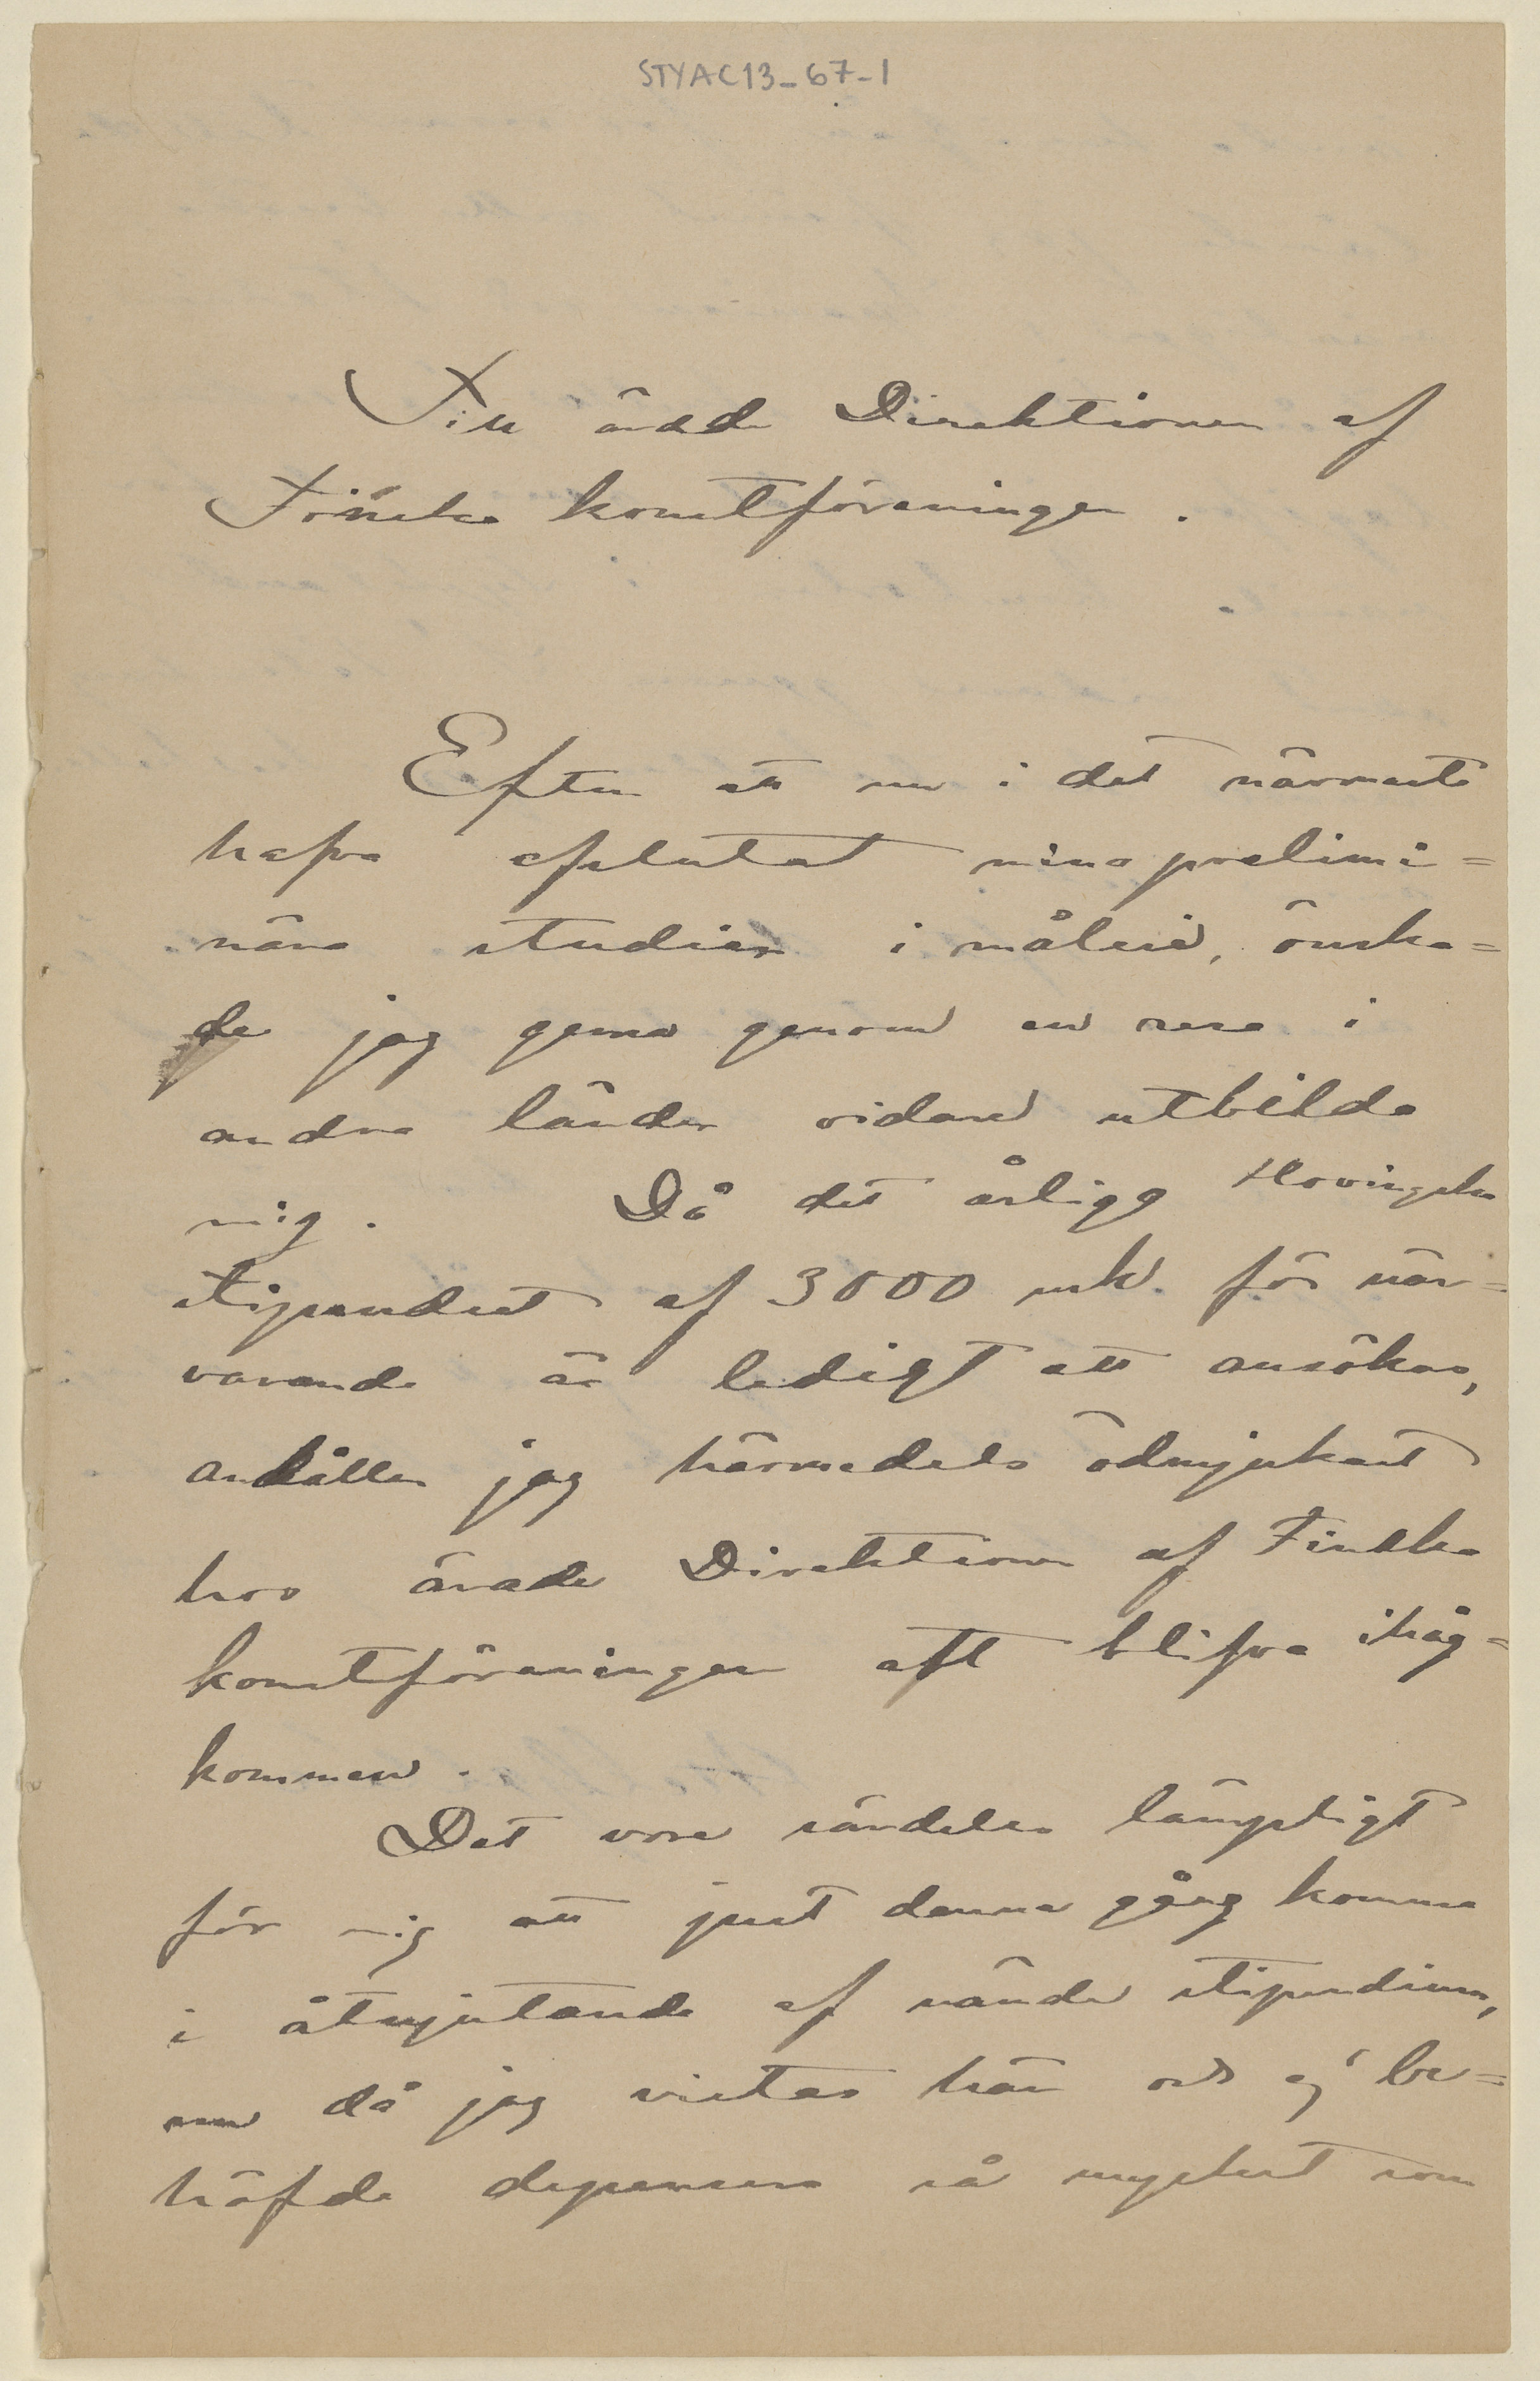 STYAC13-67-1
Till ärade Direktionen af
Finska konstföreningen.
Efter att nu i det närmaste
hafva afslutat mina prelimi=
nära studier i måleri, önska=
de jag gerna genom en resa i
andra länder vidare utbilda
mig. Då det årliga Hovingska
stipendiet af 3000 mk. för när=
varande är ledigt att ansökas,
anhåller jag härmedels ödmjukast
hos ärade Direktionen af Finska
konstföreningen att blifva ihåg=
kommen.
Det vore särdeles lämpligt
för mig att just denna gång komma
i åtnjutande af nämnda stipendium,
nu då jag vistas här och ej be=
höfde depensera så mycket som